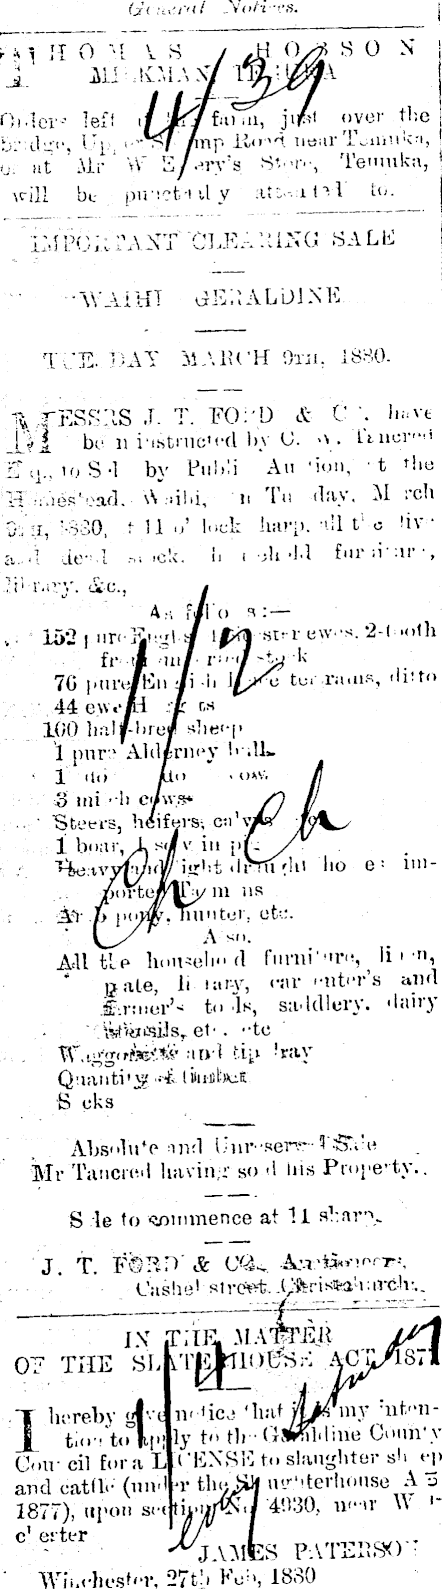 General Notices.
THOMAS HOBSON
MILKMAN, TEMUKA
Orders left farm, just over the
bridge, Upper Road near Temuka,
or at Mr W Store, Temuka,
will be punctually attended to.
IMPORTANT CLEARING SALE
WAIHI GERALDINE
TUESDAY MARCH 9TH, 1880.
MESSRS J. T. FORD & CO. have
been instructed by C. W. Tancred
Esq., to Sell by Public Auction, at the
Homestead, Waihi, on Tuesday, March
9th, 1880, at 11 o'clock sharp, all the live
and dead stock, household furniture,
library, &c.,
As follows:—
152 pure English Leicester ewes, 2-tooth
from imported stock
76 pure English Leicester rams, ditto
44 ewe Hoggets
100 half-bred sheep
1 pure Alderney bull
1 do do cow
3 milch cows
Steers, heifers, calves, etc
1 boar, 1 sow in pig
Heavy and light draught horses im-
ported Tasmanias
Arab pony, hunter, etc.
Also,
All the household furniture, linen,
plate, library, carpenter's and
farmer's tools, saddlery, dairy
utensils, etc. etc
Waggonette and tip dray
Quantity of timber
Sacks
Absolute and Unreserved Sale
Mr Tancred having sold his Property.
Sale to commence at 11 sharp.
J. T. FORD & CO., Auctioneers,
Cashel street, Christchurch.
IN THE MATTER
OF THE SLATEHOUSE ACT, 1877
I hereby give notice that it is my inten-
tion to apply to the Geraldine County
Council for a LICENSE to slaughter sheep
and cattle (under the Slaughterhouse Act
1877), upon section No. 4930, near Win-
chester
JAMES PATERSON
Winchester, 27th Feb, 1880
4/39
1/2
Ch Ch
1/4
Saturday